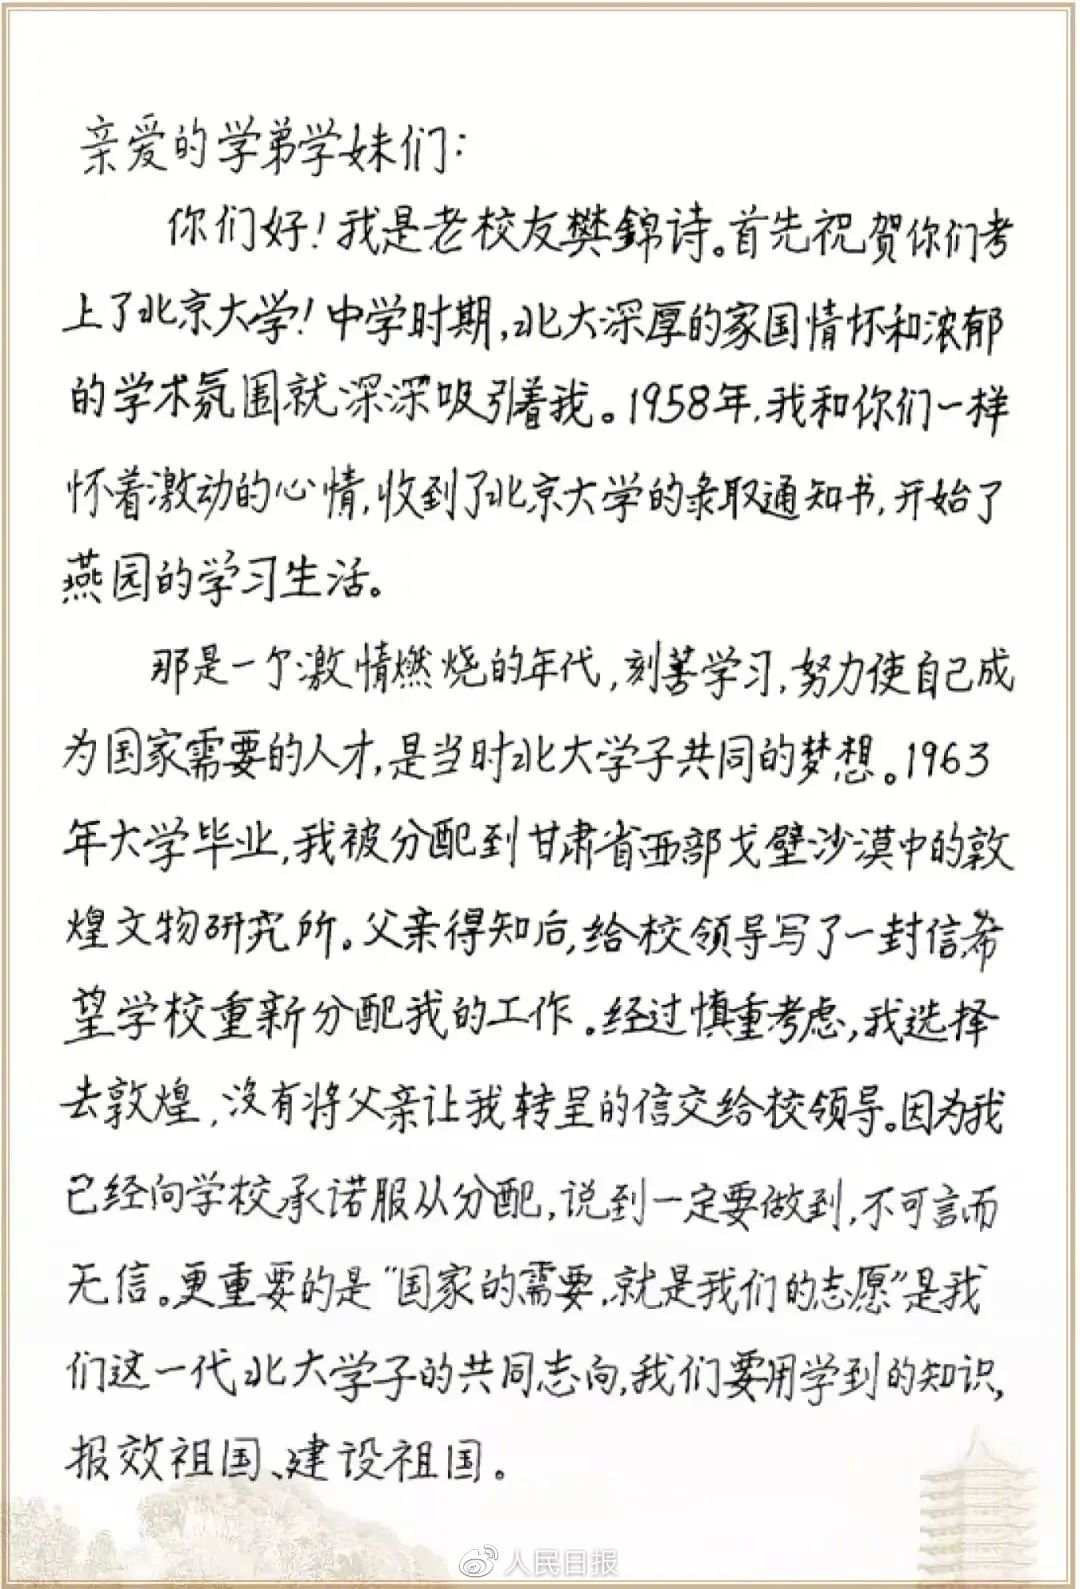 亲爱的学弟学妹们：
你们好！我是老校友樊錦诗。首先祝贺你们考
上了北京大学！中学时期，北大深厚的家国情怀和浓郁
的学术氛围就深深吸引着我。1958年，我和你们一样
怀着激动的心情，收到了北京大学的录取通知书，开始了
燕园的学习生活。
那是一个激情燃烧的年代，刻苦学习，努力使自己成
为国家需要的人才，是当时北大学子共同的梦想。1963
年大学毕业，我被分配到甘肃省西部戈壁沙漠中的敦
煌文物研究所。父亲得知后，给校领导写了一封信，希
望学校重新分配我的工作。经过慎重考虑，我选择
去敦煌，没有将父亲让我转呈的信交给校领导。因为我
已经向学校承诺服从分配，说到一定要做到，不可言而
无信。更重要的是“国家的需要，就是我们的志愿”是我
们这一代北大学子的共同志向，我们要用学到的知识，
报效祖国、建设祖国。
人民日报